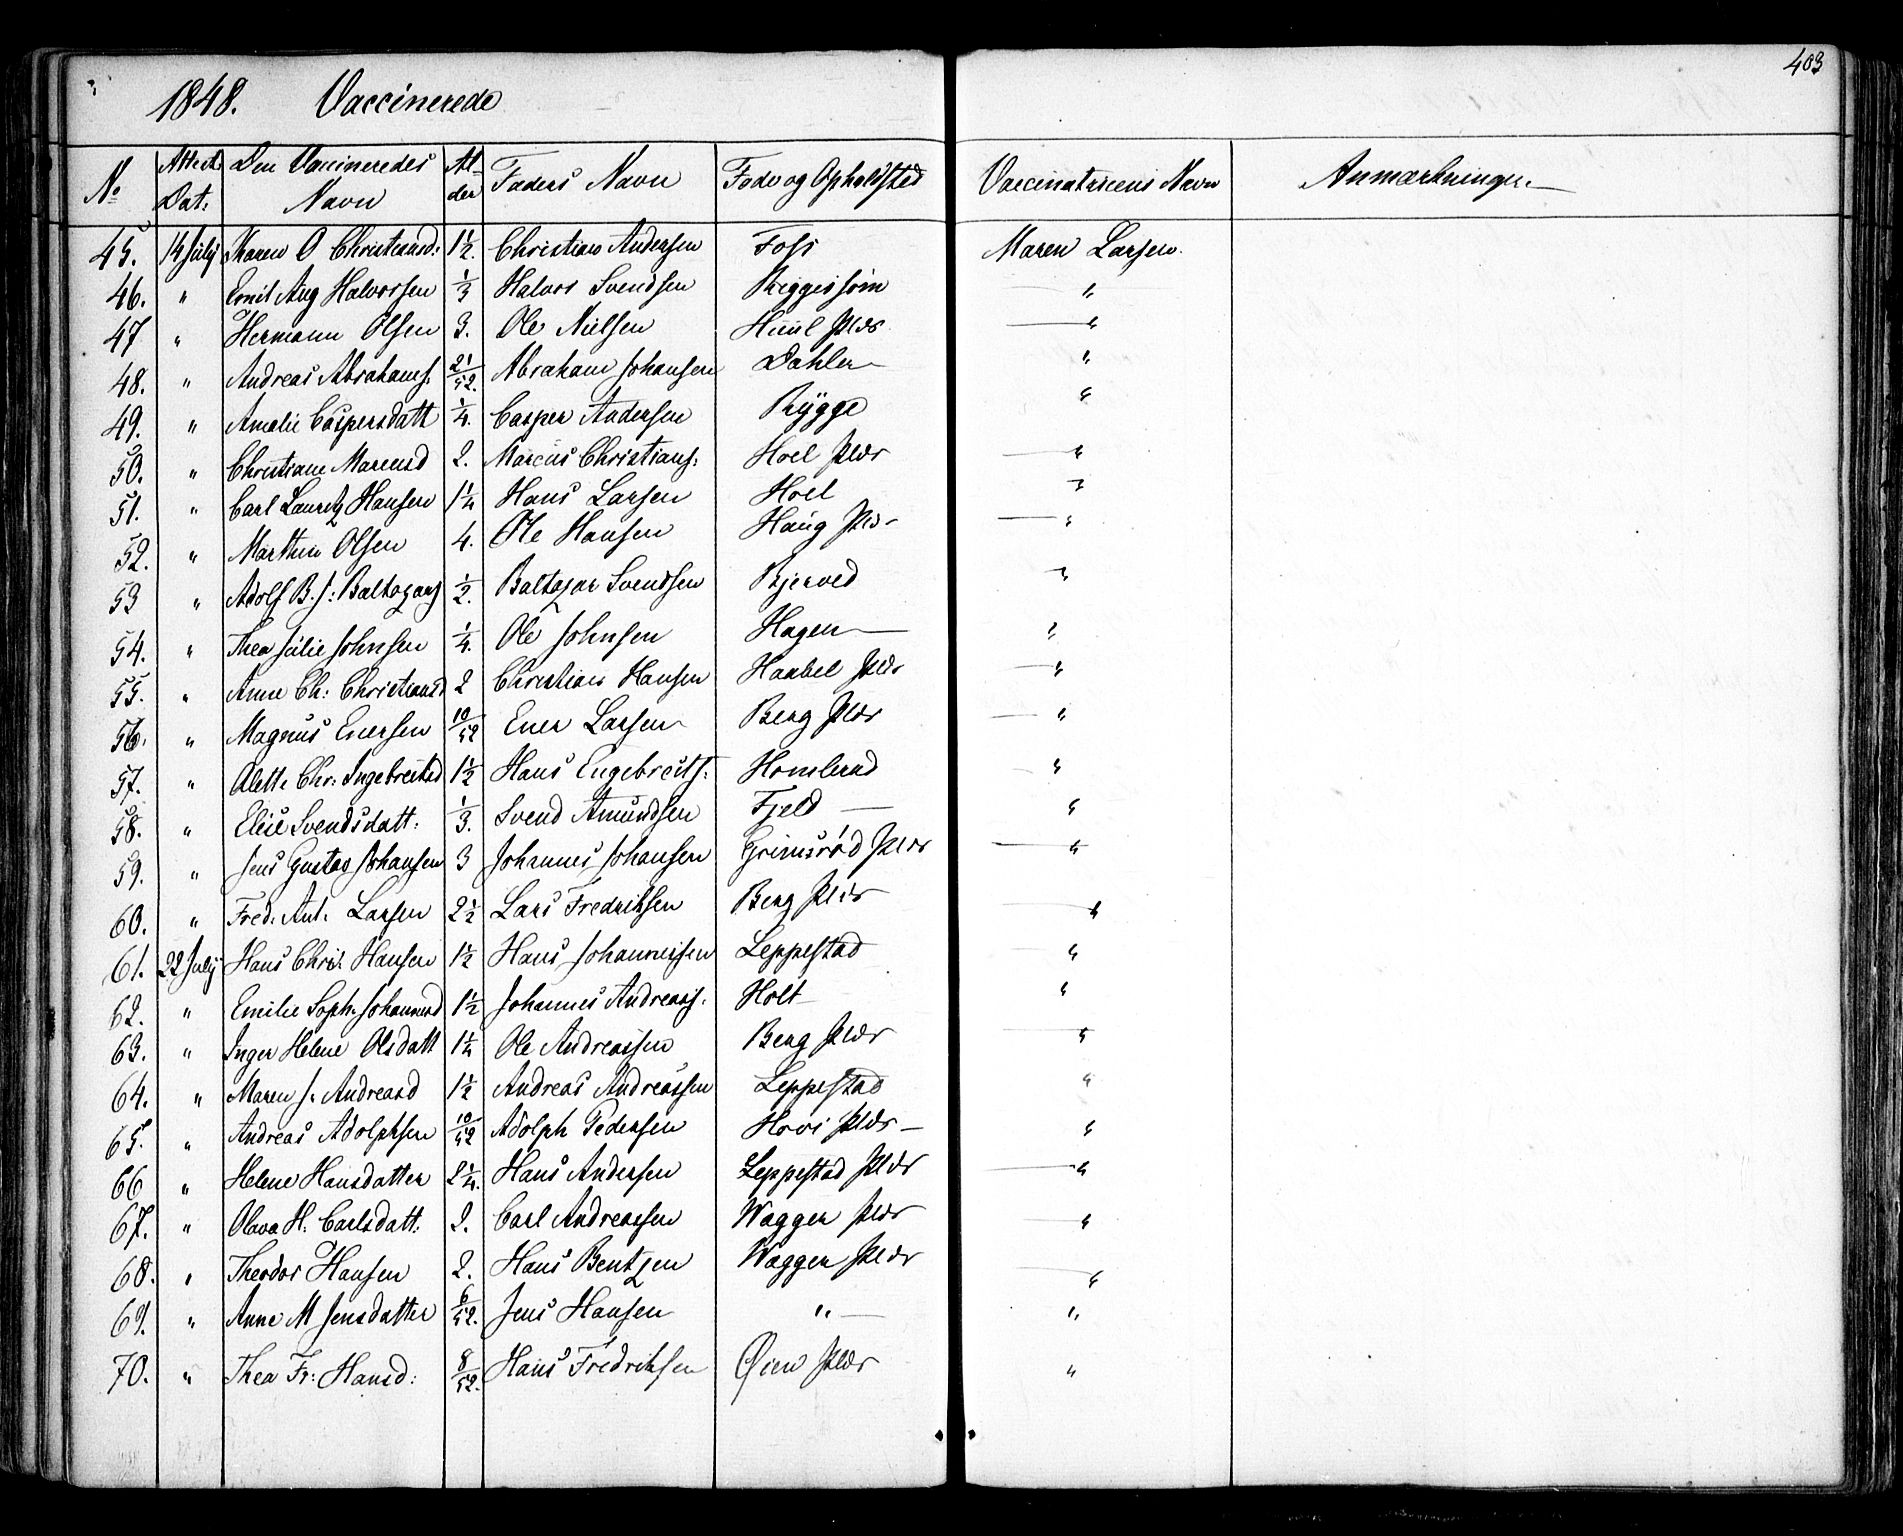 403
1848. Vaccinerede
No Attest Dat: Den Vaccineredes Navn Alder Faders Navn Føde og Opholdsted Vaccinatricens Navn Anmærkninger.
45. 14 July Karen O Christiansd: 1½. Christian Andersen Foss Maren Larsen.
46. " Emil Aug Halvorsen ⅓ Halvor Svendsen "
47 " Hermann Olsen 3. Ole Nielsen Huul Plds "
48. " Andreas Abrahams. 21/52. Abraham Johansen Dahlen "
49. " Amalie Caspersdatt ¼. Casper Andersen Rygge "
50. " Christiane Marcusd 2. Marcus Christians: Hoel Plds "
51. " Carl Lauritz Hansen 1¼ Hans Larsen Hoel "
52. " Marthin Olsen 4. Ole Hansen Haug Plds "
53 " Adolf B. J: Baltazars ½. Baltazar Svendsen Bjerved "
54. " Thea Julie Johnsen ¼. Ole Johnsen Hagen "
55. " Anne Ch: Christiansd 2 Christian Hansen Haabel Plds "
56. " Magnus Enersen 10/52 Ener Larsen Berg Plds "
57. " Olette Chr: Ingebretsd 1½ Hans Engebrets: "
58. " Elise Svendsdatt: ⅓. Svend Amundsen Fjeld "
59. " Jens Gustav Johansen 3 Johannes Johansen Grimsrød Plds "
60. " Fred. Ant. Larsen 2½ Lars Fredriksen Berg Plds "
61. 22 July Hans Chri: Hansen 1½ Hans Johannesen Leppestad "
62. " Emilie Soph. Johannesd 1½ Johannes Andreass. Holt "
63. " Inger Helene Olsdatt 1¼ Ole Andreassen Berg Plds "
64. " Maren J. Andreasd 1½ Andreas Andreassen Leppestad "
65. " Andreas Adolphsen 10/52 Adolph Pedersen Hovi Plds "
66 " Helene Hansdatter 2¼. Hans Andersen Leppestad Plds "
67. " Olava H: Carlsdatt. 2. Carl Andreassen Waggen Plds "
68. " Theodor Hansen 2. Hans Bentzen Waggen Plds "
69. " Anne M Jensdatter 6/52. Jens Hansen " "
70. " Thea Fr: Hansd: 8/52. Hans Fredriksen Øien Plds "